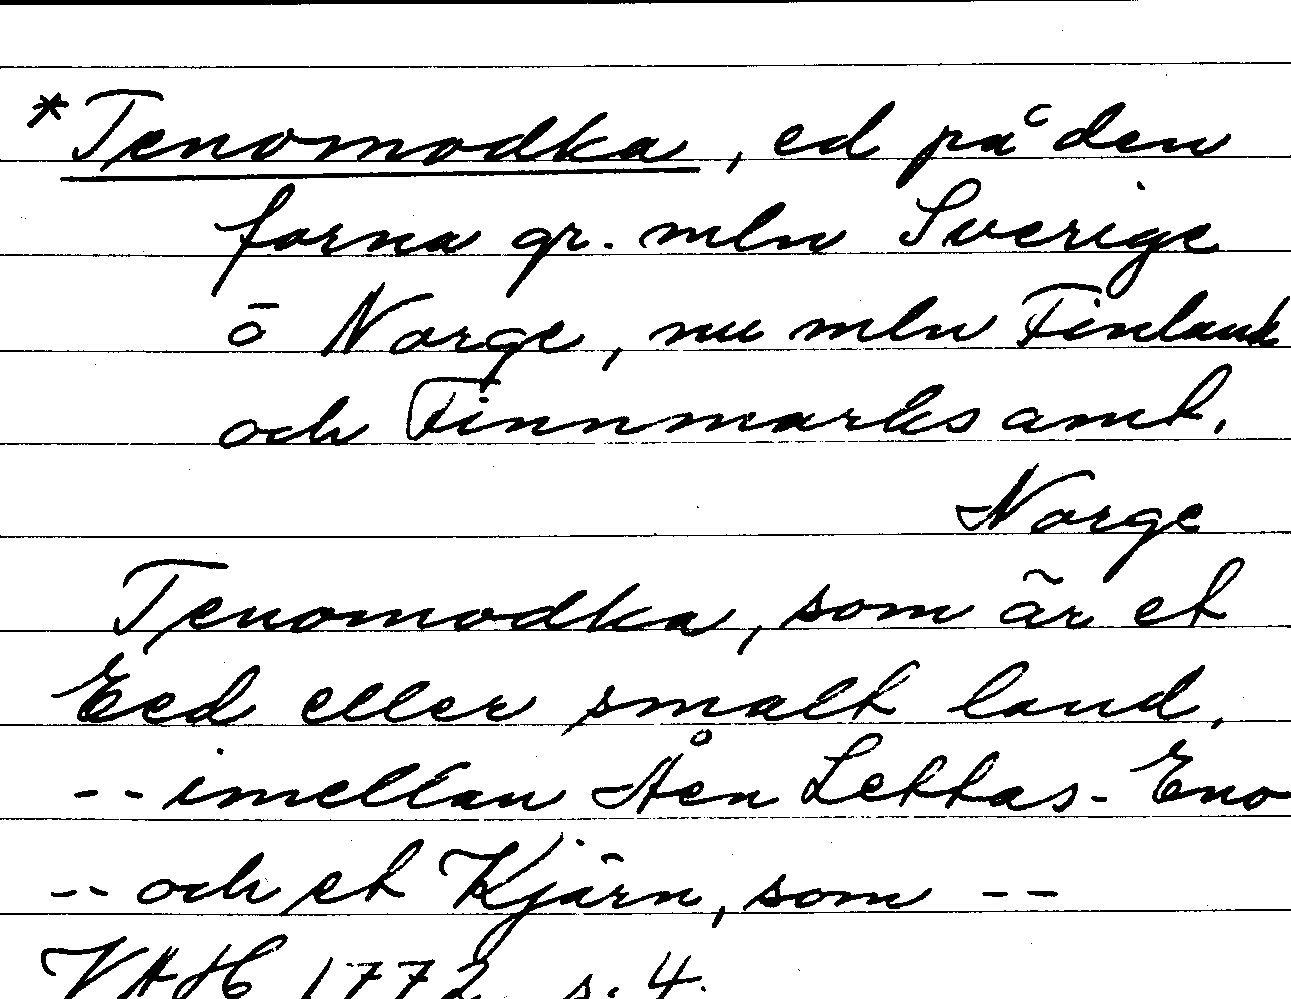 *Tenomodka, ed på den
forna gr. mln Sverige
ō Norge, nu mln Finland
och Finnmarks amt.
Norge
Tenomodka, som är et
Eed eller smalt land,
-- imellan Åen Lettas-Eno
-- och et Kjärn, som --
VAH 1772 s. 4.